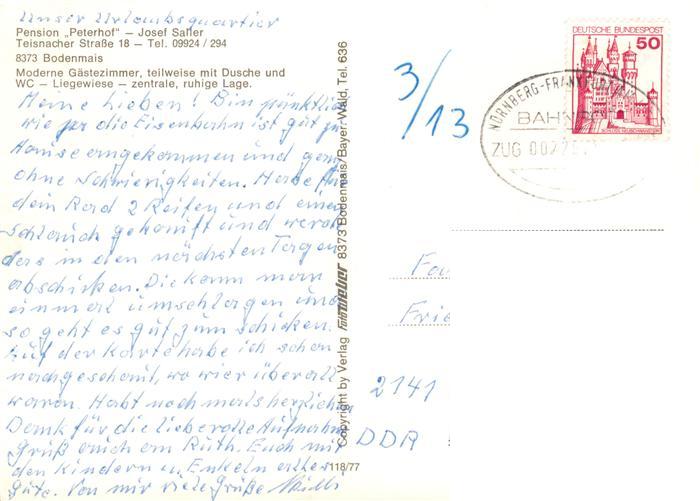 Unser Urlaubsquartier
Pension „Peterhof" – Josef Saller
Teisnacher Straße 18 – Tel. 09924 / 294
8373 Bodenmais
Moderne Gästezimmer, teilweise mit Dusche und
WC – Liegewiese – zentrale, ruhige Lage.
Meine Lieben! Bin pünktlich
wie die Eisenbahn ist gut zu
Hause angekommen und ganz
ohne Schwierigkeiten. Habe für
dein Rad 2 Reifen und einen
Schlauch gekauft und werd
ders in den nächsten Tagen
abschicken. Die kann man
einmal umschlagen und
so geht es gut zum schicken.
Auf der Karte habe ich schon
nachgeschaut, wo wier überall
waren. Habt nochmals herzlichen
Dank für die liebevolle Aufnahm
Grüß auch am Ruth. Euch mit
den Kindern u. Enkeln alles
gute. Von mir viele Grüße Willi
Copyright by Verlag foto weber 8373 Bodenmais/Bayer. Wald, Tel. 636
118/77
3/13
DEUTSCHE BUNDESPOST
50
SCHLOSS NEUSCHWANSTEIN
NÜRNBERG-FRANKFURT
BAHNPOST
ZUG
Fa
Frie
2141
DDR